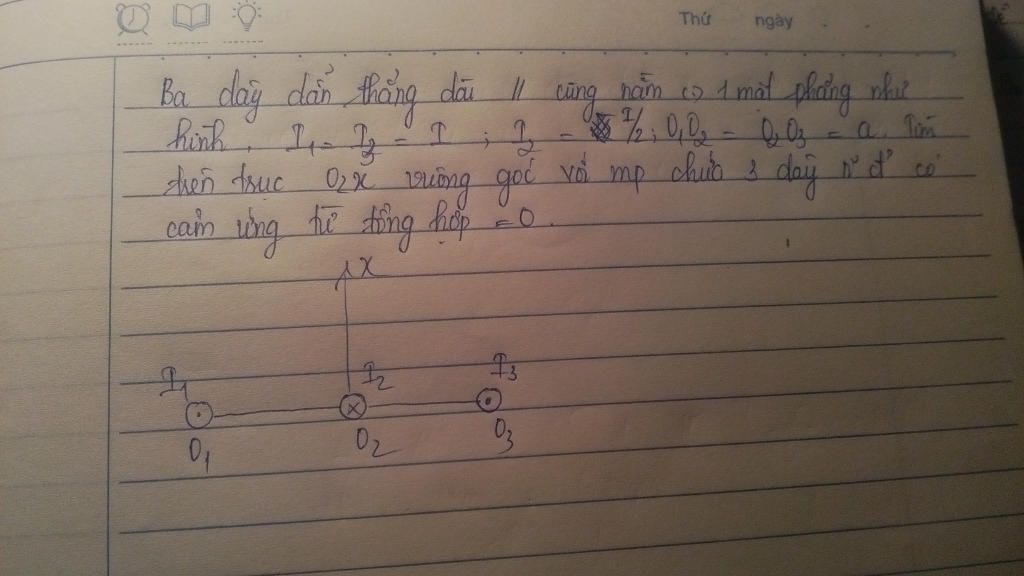 Thứ ngày
Ba dây dẫn thẳng dài // cùng nằm 1 mặt phẳng như
hình. I₁ = I₃ = I ; I₂ = I/2 ; O₁O₂ = O₂O₃ = a. Tìm
trên trục O₂x vuông góc với mp chứa 3 dây n~ đ' có
cảm ứng từ tổng hợp = 0.
x
I₁ I₂ I₃
O₁ O₂ O₃